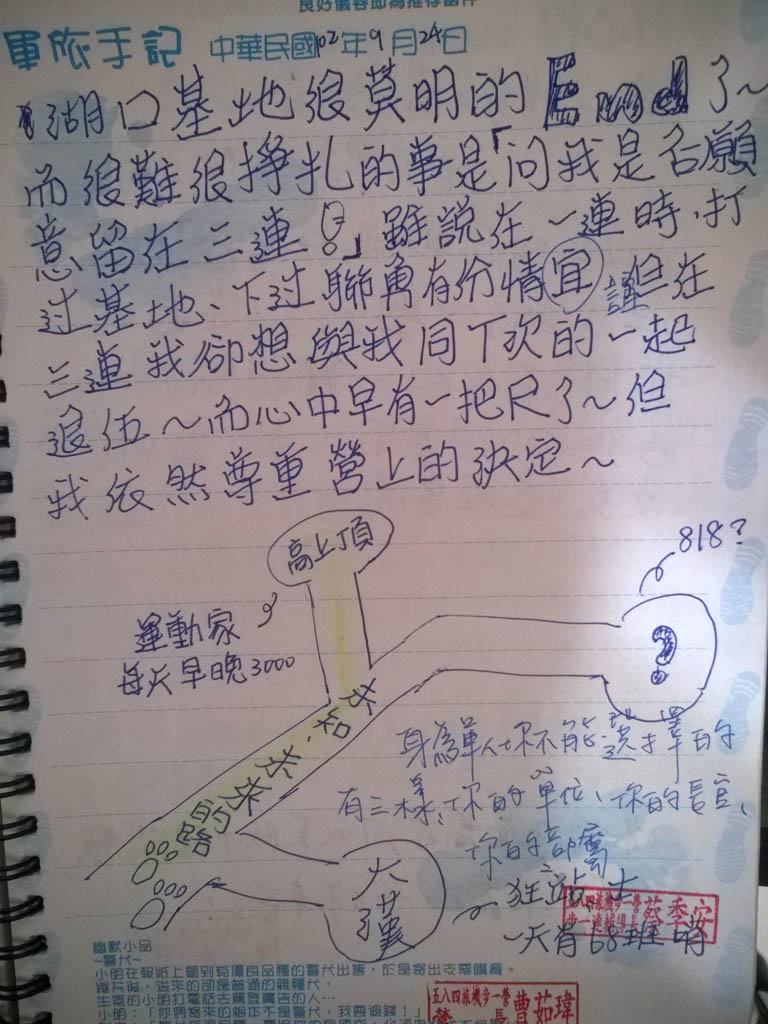 良好儀容即為推存函件
軍旅手記 中華民國102年9月24日
湖口基地很莫明的End了~
而很難很掙扎的事是「問我是否願
意留在三連!?」雖說在一連時、打
过基地、下过聯勇有份情宜誼但在
三連我卻想與我同丁次的一起
退伍~而心中早有一把尺了~但
我依然尊重營上的決定~
高山頂
818?
運動家
每天早晚3000
?
未知、未來的路
身為軍人你不能選擇的
有三樣、你的單位、你的長官、
你的部屬
大漢
狂站
一天肖68班哨
五八四旅機步一營
步一連輔導長 蔡季安
幽默小品
~警犬~
小明在報紙上看到有優良品種的警犬出售，於是寄出支票購買。
幾天後，送來的卻是普通的雜種犬。
生氣的小明打電話去罵登廣告的人…
小明：「你們寄來的根本不是警犬，我要退錢！」
五八四旅機步一營
營長 曹茹瑋